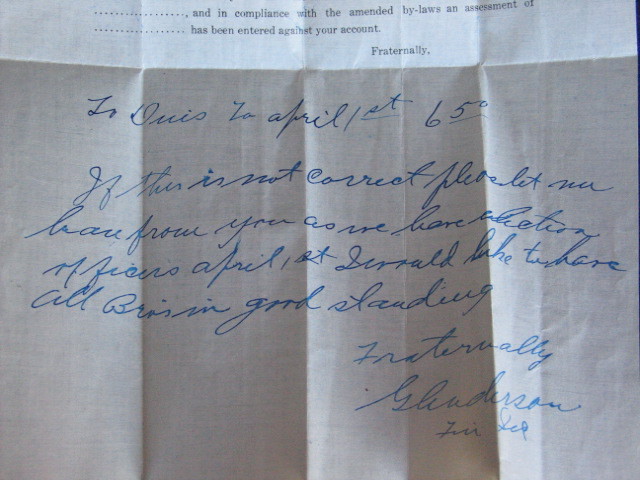 ...................., and in compliance with the amended by-laws an assessment of
.................... has been entered against your account.
Fraternally,
To Dues To april 1st 6 50
If this is not correct please let me
hear from you as we have election
officers april 1st I would like to have
all Bros in good standing
Fraternally
Fin Sec